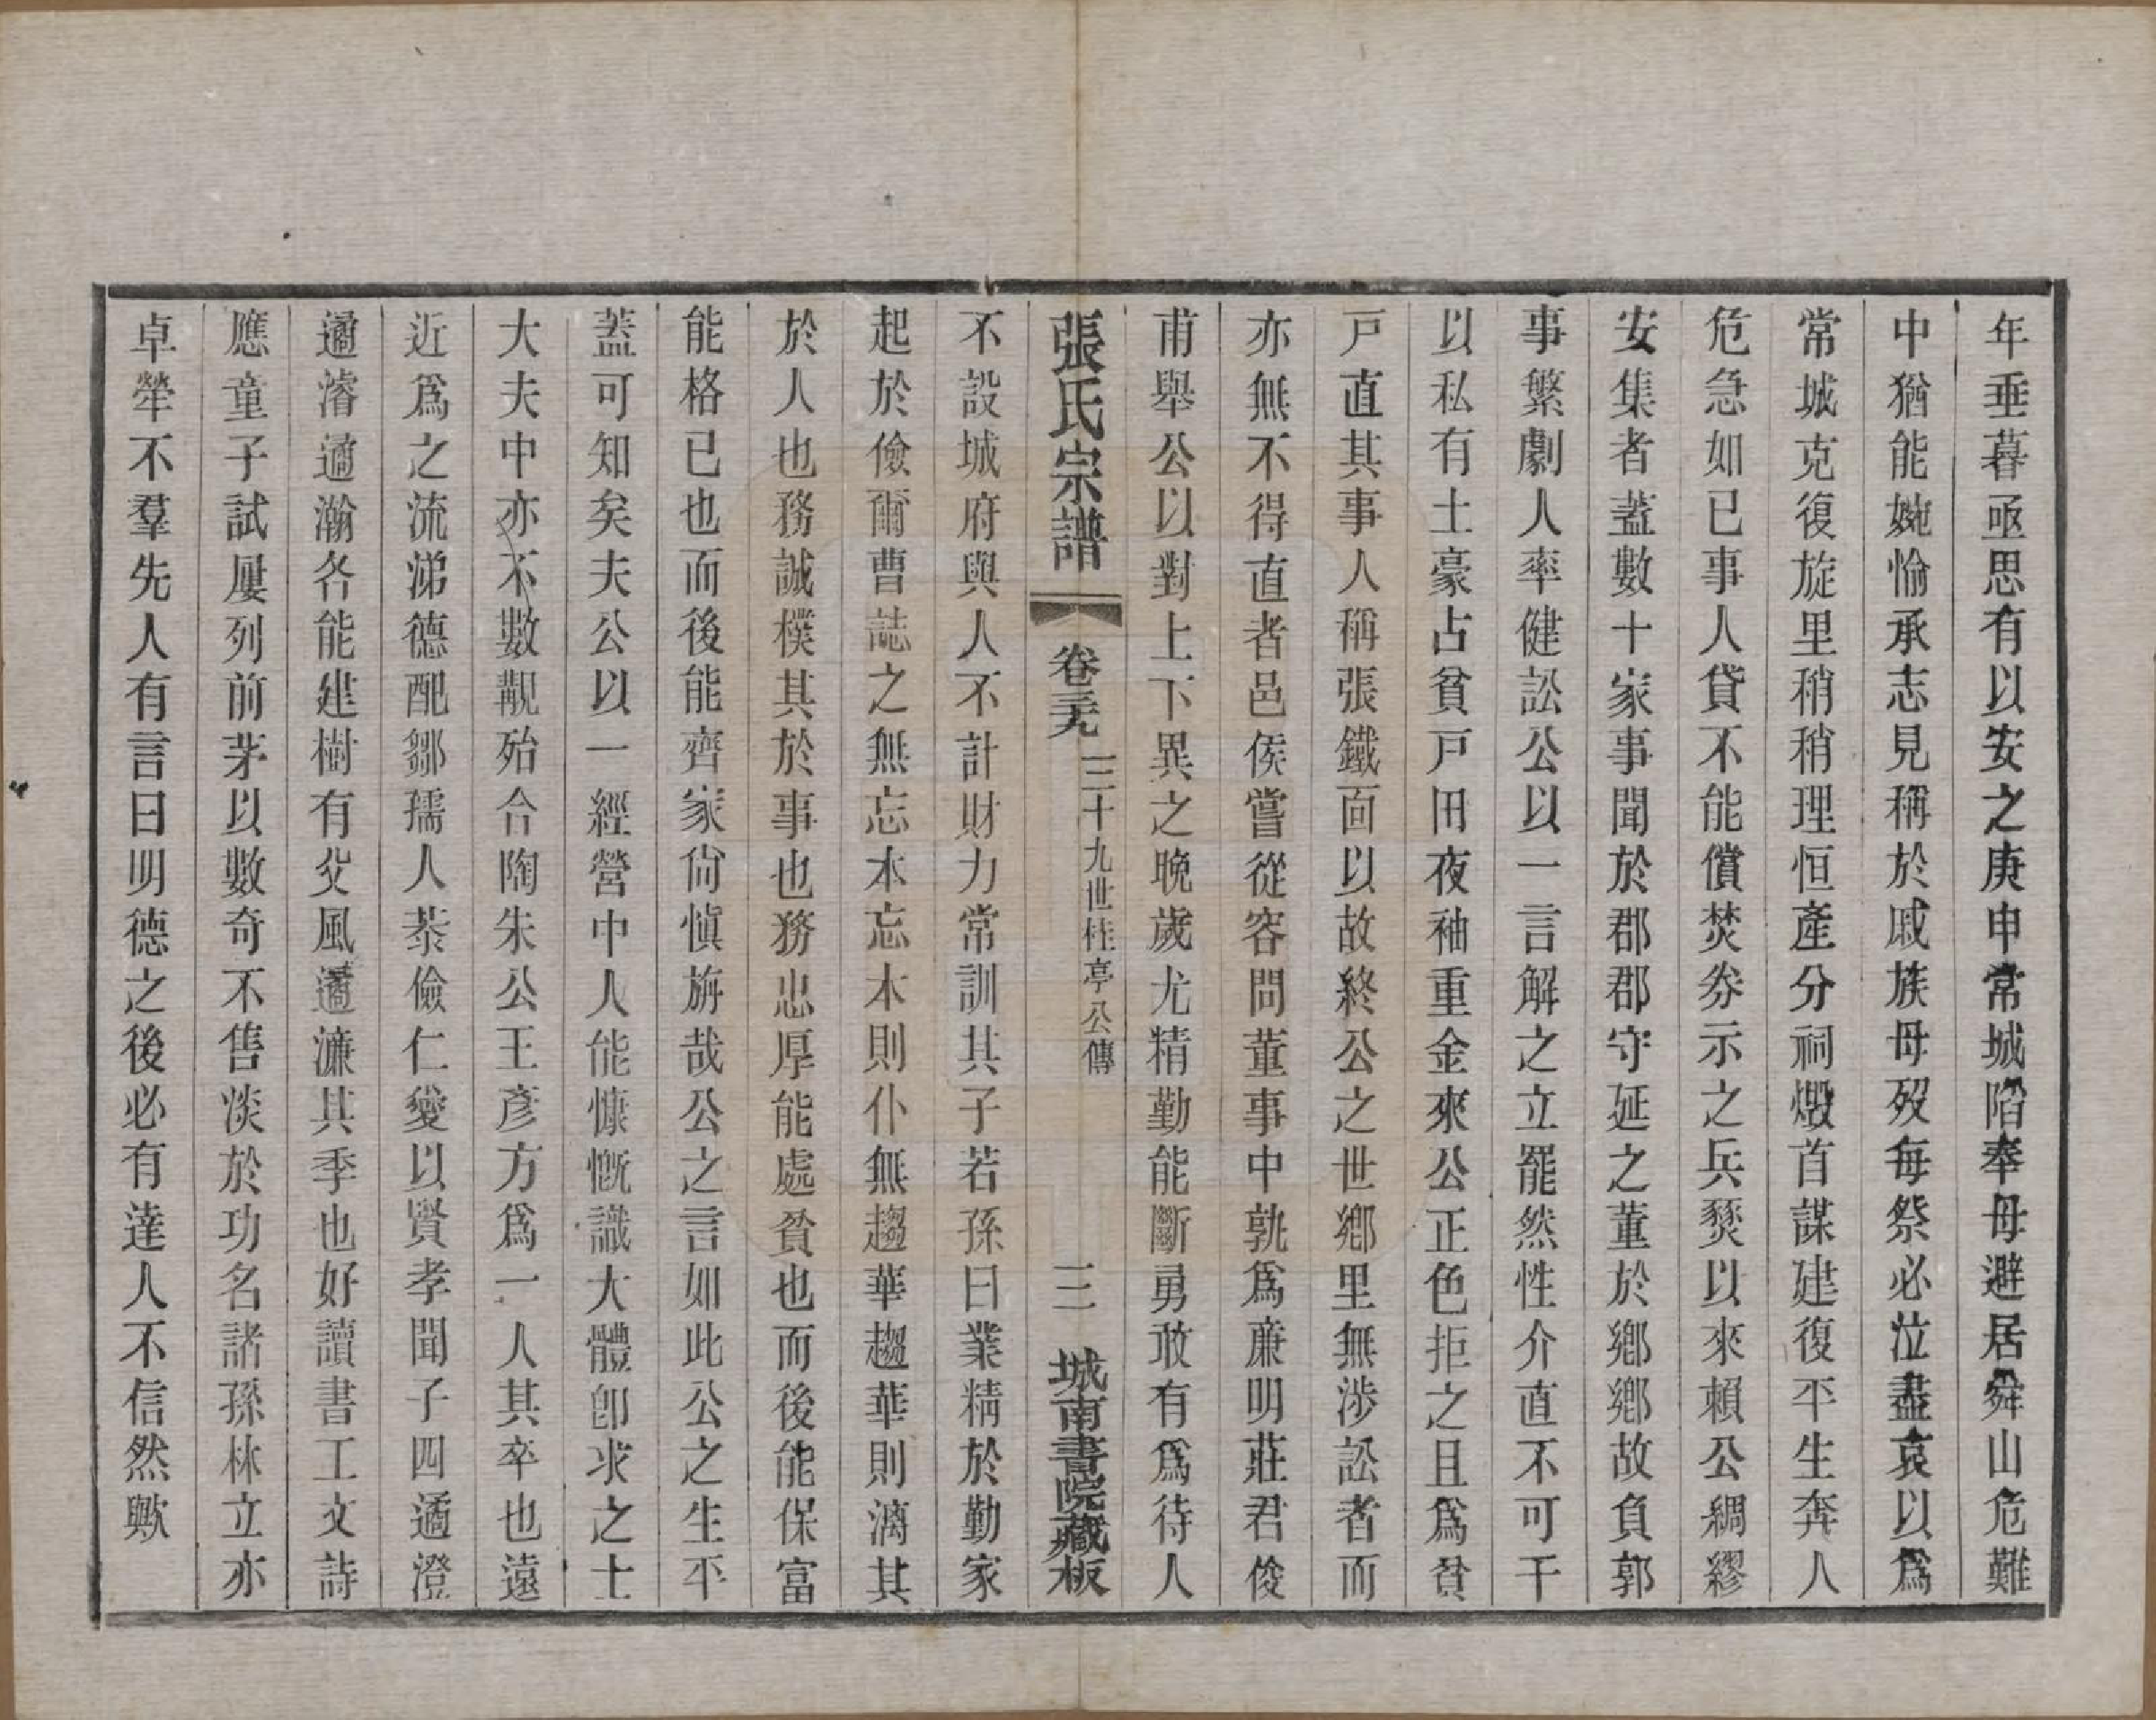 年垂暮亟思有以安之庚申常城陷奉母避居舜山危難
中猶能婉愉承志見稱於戚族母歿每祭必泣盡哀以爲
常城克復旋里稍稍理恒產分祠燬首謀建復平生奔人
危急如已事人貸不能償焚券示之兵燹以來賴公綢繆
安集者蓋數十家事聞於郡郡守延之董於鄉鄉故負郭
事繁劇人率健訟公以一言解之立罷然性介直不可干
以私有土豪占貧戸田夜袖重金來公正色拒之且爲貧
戸直其事人稱張鐵面以故終公之世鄉里無涉訟者而
亦無不得直者邑侯嘗從容問董事中孰爲廉明莊君俊
甫舉公以對上下異之晚歲尤精勤能斷勇敢有爲待人
張氏宗譜 卷三九 三十九世桂亭公傳 三 城南書院藏板
不設城府與人不計財力常訓其子若孫曰業精於勤家
起於儉爾曹誌之無忘本忘本則仆無趨華趨華則漓其
於人也務誠樸其於事也務忠厚能處貧也而後能保富
能格已也而後能齊家尙愼旃哉公之言如此公之生平
蓋可知矣夫公以一經營中人能慷慨識大體卽求之士
大夫中亦不數覯殆合陶朱公王彥方爲一人其卒也遠
近爲之流涕德配鄒孺人恭儉仁愛以賢孝聞子四遹澄
遹濬遹瀚各能建樹有父風遹濂其季也好讀書工文詩
應童子試屢列前茅以數奇不售淡於功名諸孫林立亦
卓犖不羣先人有言曰明德之後必有達人不信然歟